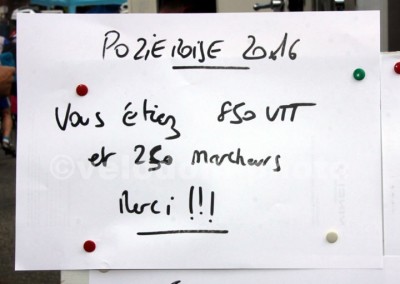 POZIEROISE 2016
Vous étiez 850 VTT
et 250 marcheurs
Merci !!!